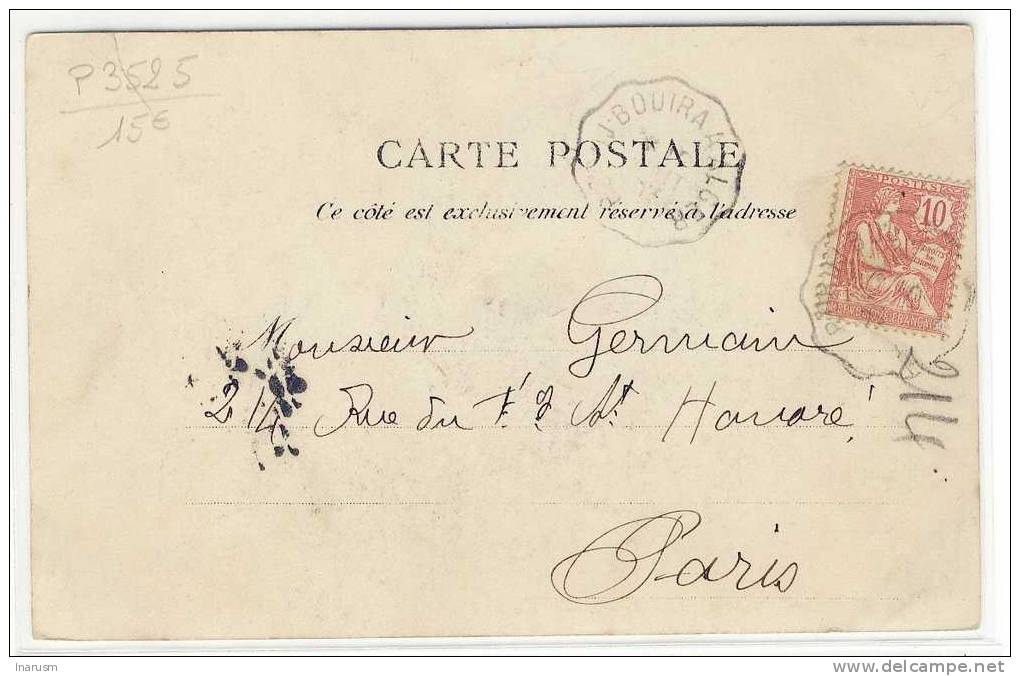 P 3525
15€
BOUIRA A ALGER
CARTE POSTALE
Ce côté est exclusivement réservé à l'adresse
POSTES
10
DROITS DE L'HOMME
Monsieur Germain
214 Rue du Fg St Honoré
214
Paris
Inarusm
www.delcampe.net